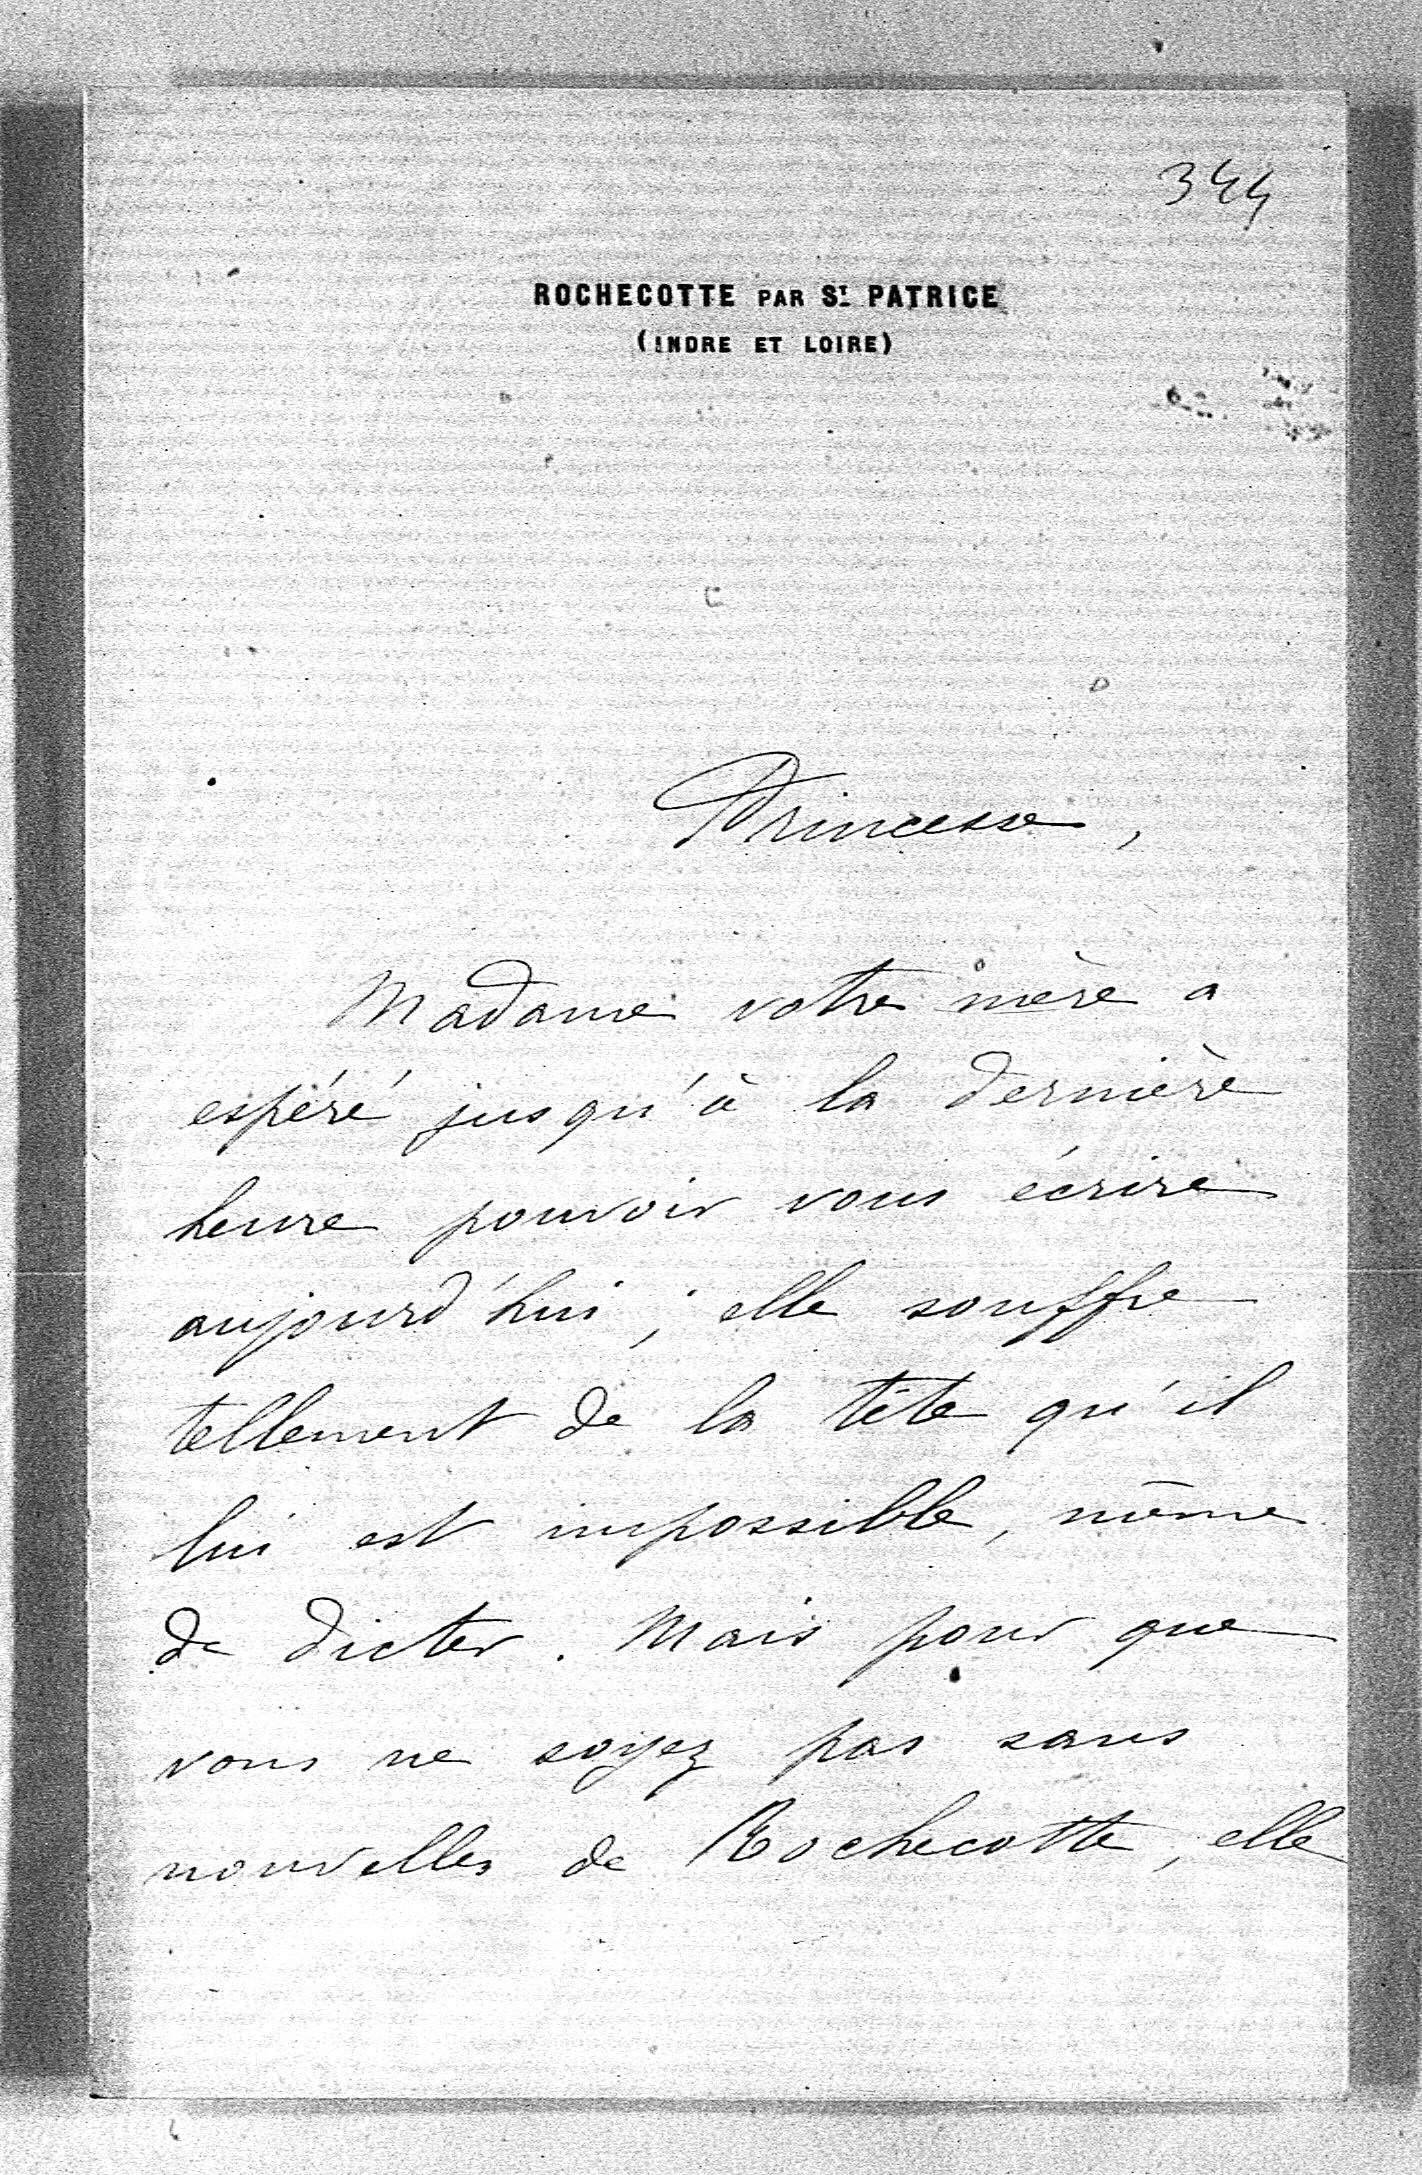 344
ROCHECOTTE PAR ST PATRICE
(INDRE ET LOIRE)
Princesse,
Madame votre mère a
espéré jusqu'à la dernière
heure pouvoir vous écrire
aujourd'hui ; elle souffre
tellement de la tête qu'il
lui est impossible, même
de dicter. Mais pour que
vous ne soyez pas sans
nouvelles de Rochecotte, elle